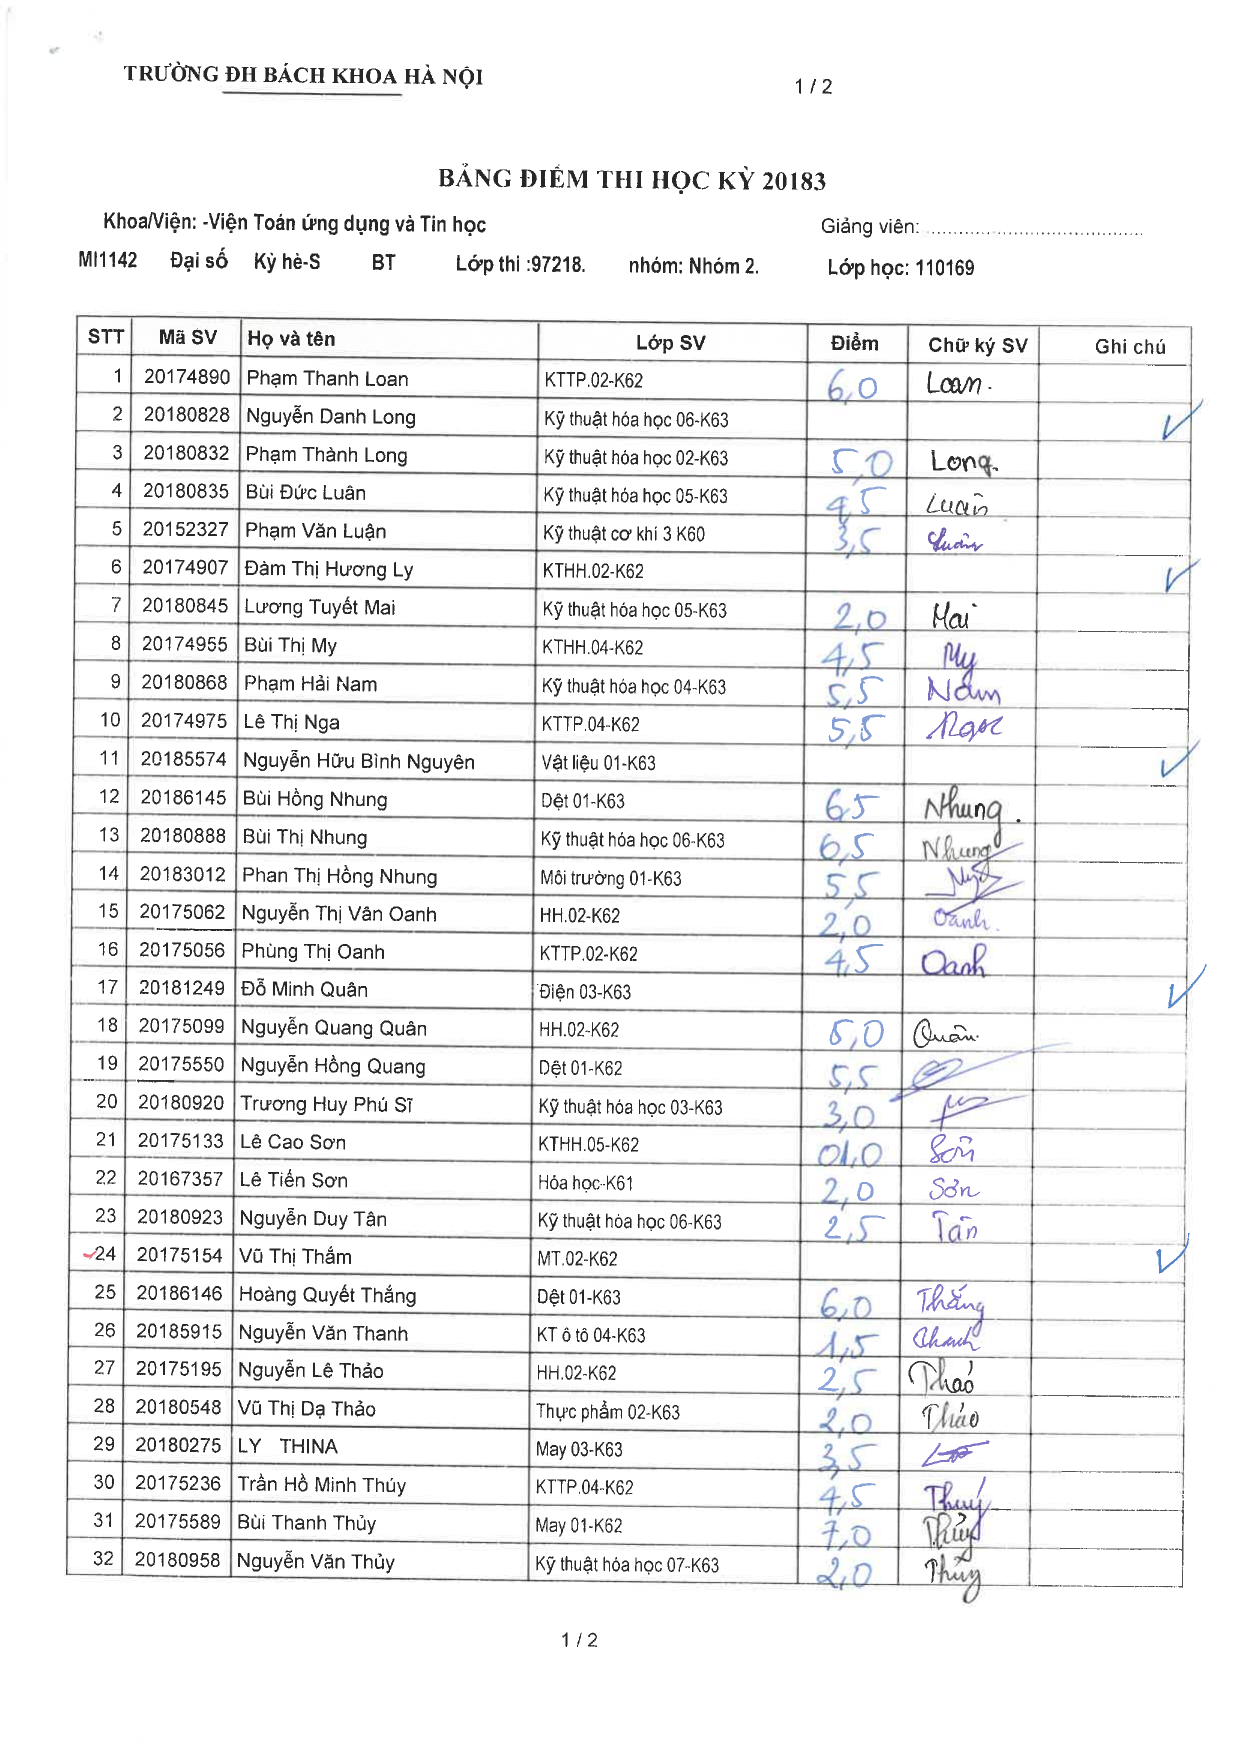 TRƯỜNG ĐH BÁCH KHOA HÀ NỘI
1 / 2
BẢNG ĐIỂM THI HỌC KỲ 20183
Khoa/Viện: -Viện Toán ứng dụng và Tin học Giảng viên: ........................................
MI1142 Đại số Kỳ hè-S BT Lớp thi :97218. nhóm: Nhóm 2. Lớp học: 110169
STT Mã SV Họ và tên Lớp SV Điểm Chữ ký SV Ghi chú
1 20174890 Phạm Thanh Loan KTTP.02-K62 6,0 Loan.
2 20180828 Nguyễn Danh Long Kỹ thuật hóa học 06-K63
3 20180832 Phạm Thành Long Kỹ thuật hóa học 02-K63 5,0 Long.
4 20180835 Bùi Đức Luân Kỹ thuật hóa học 05-K63 4,5 Luân
5 20152327 Phạm Văn Luận Kỹ thuật cơ khí 3 K60 3,5
6 20174907 Đàm Thị Hương Ly KTHH.02-K62
7 20180845 Lương Tuyết Mai Kỹ thuật hóa học 05-K63 2,0 Mai
8 20174955 Bùi Thị My KTHH.04-K62 4,5 My
9 20180868 Phạm Hải Nam Kỹ thuật hóa học 04-K63 5,5 Nam
10 20174975 Lê Thị Nga KTTP.04-K62 5,5
11 20185574 Nguyễn Hữu Bình Nguyên Vật liệu 01-K63
12 20186145 Bùi Hồng Nhung Dệt 01-K63 6,5 Nhung.
13 20180888 Bùi Thị Nhung Kỹ thuật hóa học 06-K63 6,5 Nhung
14 20183012 Phan Thị Hồng Nhung Môi trường 01-K63 5,5
15 20175062 Nguyễn Thị Vân Oanh HH.02-K62 2,0 Oanh.
16 20175056 Phùng Thị Oanh KTTP.02-K62 4,5 Oanh
17 20181249 Đỗ Minh Quân Điện 03-K63
18 20175099 Nguyễn Quang Quân HH.02-K62 5,0 Quân
19 20175550 Nguyễn Hồng Quang Dệt 01-K62 5,5
20 20180920 Trương Huy Phú Sĩ Kỹ thuật hóa học 03-K63 3,0
21 20175133 Lê Cao Sơn KTHH.05-K62 01,0 Sơn
22 20167357 Lê Tiến Sơn Hóa học-K61 2,0 Sơn
23 20180923 Nguyễn Duy Tân Kỹ thuật hóa học 06-K63 2,5 Tân
24 20175154 Vũ Thị Thắm MT.02-K62
25 20186146 Hoàng Quyết Thắng Dệt 01-K63 6,0 Thắng
26 20185915 Nguyễn Văn Thanh KT ô tô 04-K63 1,5 Thanh
27 20175195 Nguyễn Lê Thảo HH.02-K62 2,5 Thảo
28 20180548 Vũ Thị Dạ Thảo Thực phẩm 02-K63 2,0 Thảo
29 20180275 LY THINA May 03-K63 3,5
30 20175236 Trần Hồ Minh Thúy KTTP.04-K62 4,5 Thuý
31 20175589 Bùi Thanh Thủy May 01-K62 7,0 Thủy
32 20180958 Nguyễn Văn Thủy Kỹ thuật hóa học 07-K63 2,0 Thủy
1 / 2